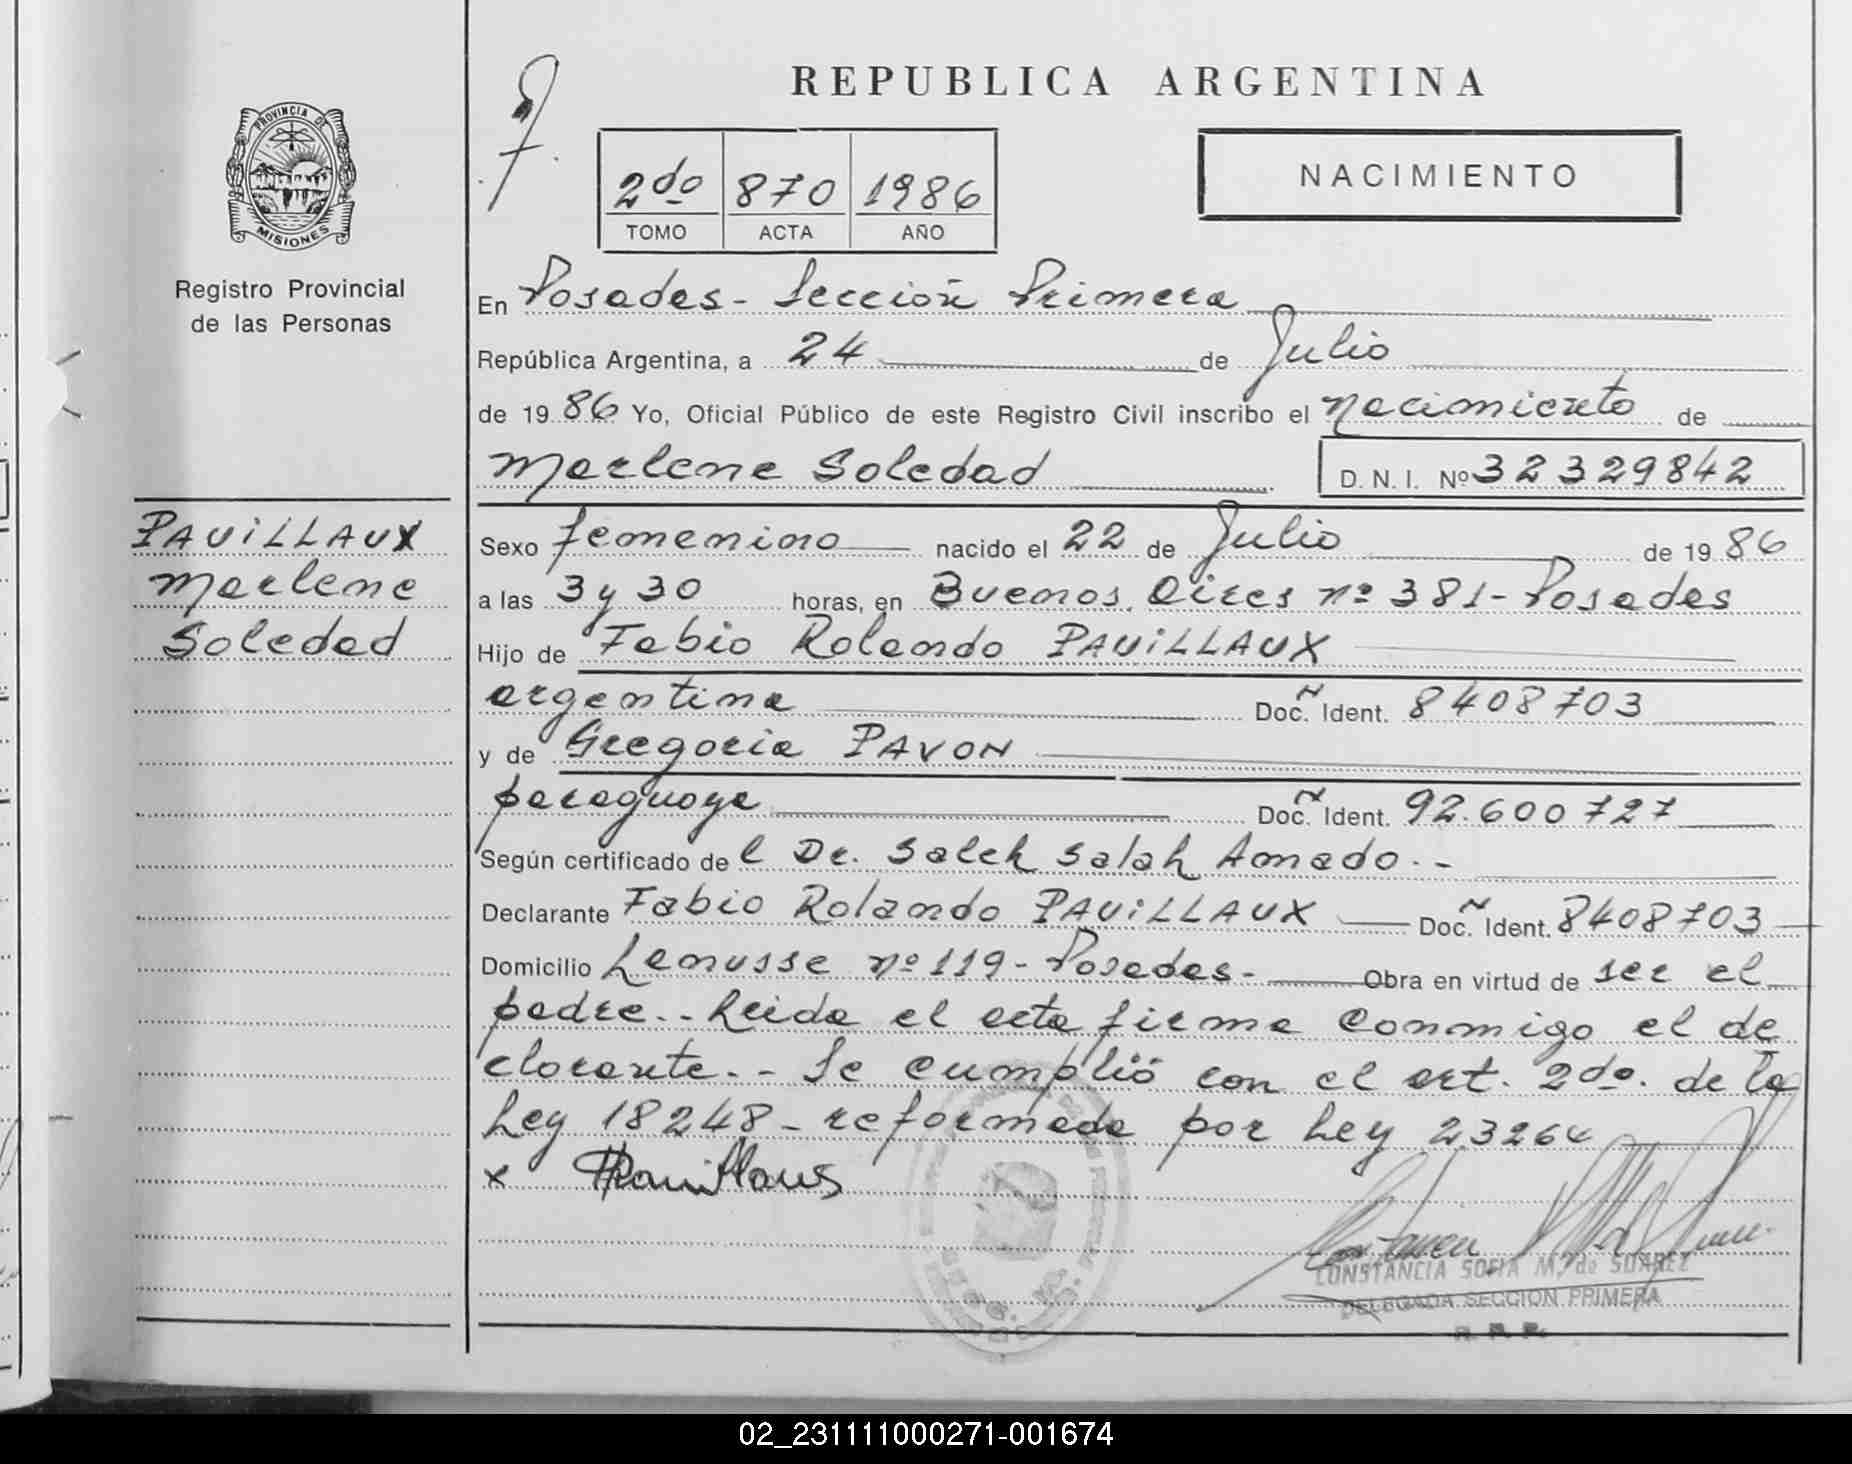 REPUBLICA ARGENTINA
PROVINCIA DE
MISIONES
Registro Provincial
de las Personas
2do 870 1986
TOMO ACTA AÑO
NACIMIENTO
En Posadas - Sección Primera
República Argentina, a 24 de Julio
de 1986 Yo, Oficial Público de este Registro Civil inscribo el nacimiento de
Marlene Soledad D. N. I. Nº 32329842
PAUiLLAUX
Marlene
Soledad
Sexo femenino nacido el 22 de Julio de 1986
a las 3 y 30 horas, en Buenos Aires nº 381 - Posadas
Hijo de Fabio Rolando PAUiLLAUX
argentina Doc. Ident. 8408703
y de Gregoria PAVON
paraguaya Doc. Ident. 92.600727
Según certificado del Dr. Saleh Salah Amado.-
Declarante Fabio Rolando PAUiLLAUX Doc. Ident. 8408703
Domicilio Lanusse nº 119 - Posadas - Obra en virtud de ser el
padre.- Leida el acta firma conmigo el de
clarante.- Se cumplió con el art. 2do. de la
Ley 18248 - reformada por Ley 23264
x
CONSTANCIA SOFIA M. de SUAREZ
DELEGADA SECCION PRIMERA
R. P. P.
02_231111000271-001674